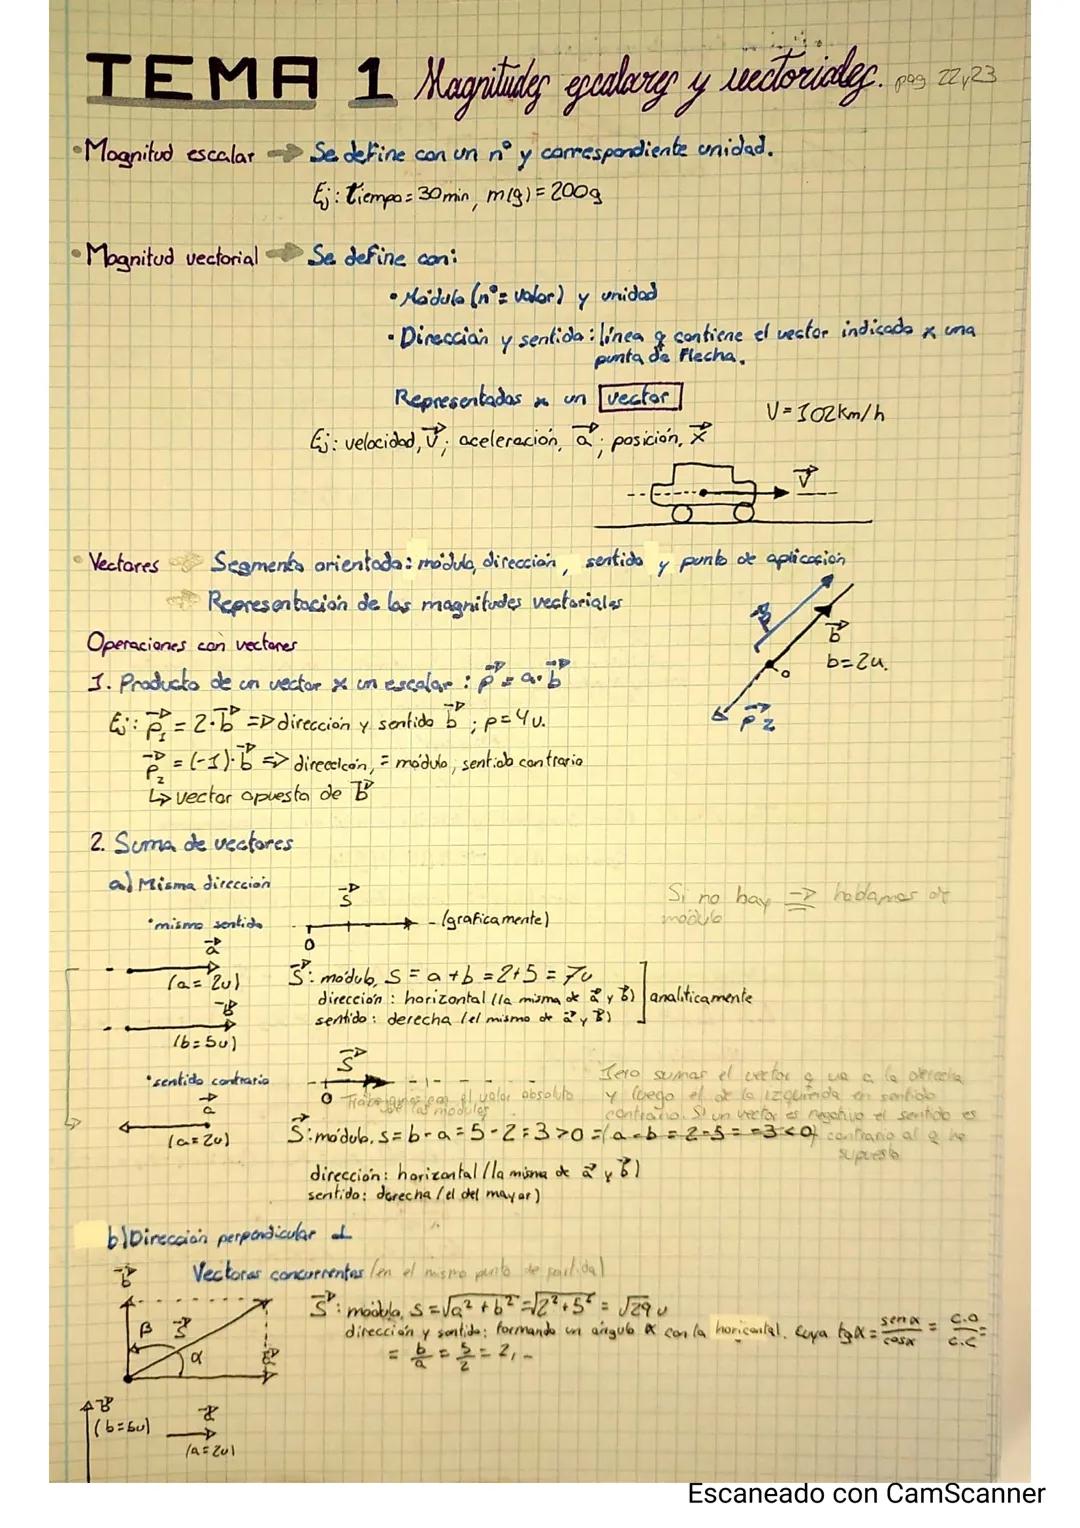 TEMA 1 Magnitudes escalares y vectoriales. pag 22 y 23
• Magnitud escalar → Se define con un nº y correspondiente unidad.
Ej: tiempo = 30 min, m(g) = 200g
• Magnitud vectorial → Se define con:
• Módulo (nº = valor) y unidad
• Dirección y sentido: línea q contiene el vector indicado x una
punta de flecha.
Representadas x un vector
V = 102 km/h
Ej: velocidad, v⃗; aceleración, a⃗; posición, x⃗
v⃗
• Vectores → Segmento orientado: módulo, dirección, sentido y punto de aplicación
→ Representación de las magnitudes vectoriales
p⃗
b⃗
b = 2u.
o
p⃗2
Operaciones con vectores
1. Producto de un vector x un escalar: p⃗ = a·b⃗
Ej: p⃗1 = 2·b⃗ => dirección y sentido b⃗; p = 4u.
p⃗2 = (-1)·b⃗ => dirección, = módulo, sentido contrario
↳ vector opuesto de b⃗
2. Suma de vectores
a) Misma dirección
Si no hay → hablamos de
módulo
• mismo sentido
s⃗
0
(graficamente)
a⃗
(a = 2u)
b⃗
(b = 5u)
S⃗: módulo, S = a + b = 2 + 5 = 7u
dirección: horizontal (la misma de a⃗ y b⃗)
sentido: derecha (el mismo de a⃗ y b⃗)
analíticamente
• sentido contrario
s⃗
0
a⃗
(a = 2u)
Trabajamos con el valor absoluto
de los módulos
sumar el vector q va a la derecha
y luego el de la izquierda en sentido
contrario. Si un vector es negativo el sentido es
contrario al q he
supuesto
S⃗: módulo, s = b - a = 5 - 2 = 3 > 0 = (a - b = 2 - 5 = -3 < 0)
dirección: horizontal (la misma de a⃗ y b⃗)
sentido: derecha (el del mayor)
b) Dirección perpendicular ⊥
Vectores concurrentes (en el mismo punto de partida)
b⃗
β
s⃗
α
a⃗
S⃗: módulo, s = √a² + b² = √2² + 5² = √29 u
dirección y sentido: formando un ángulo α con la horizontal. Cuya tgα = senα/cosα = C.O/C.C =
= b/a = 5/2 = 2,-
b⃗
(b = 5u)
a⃗
(a = 2u)
Escaneado con CamScanner